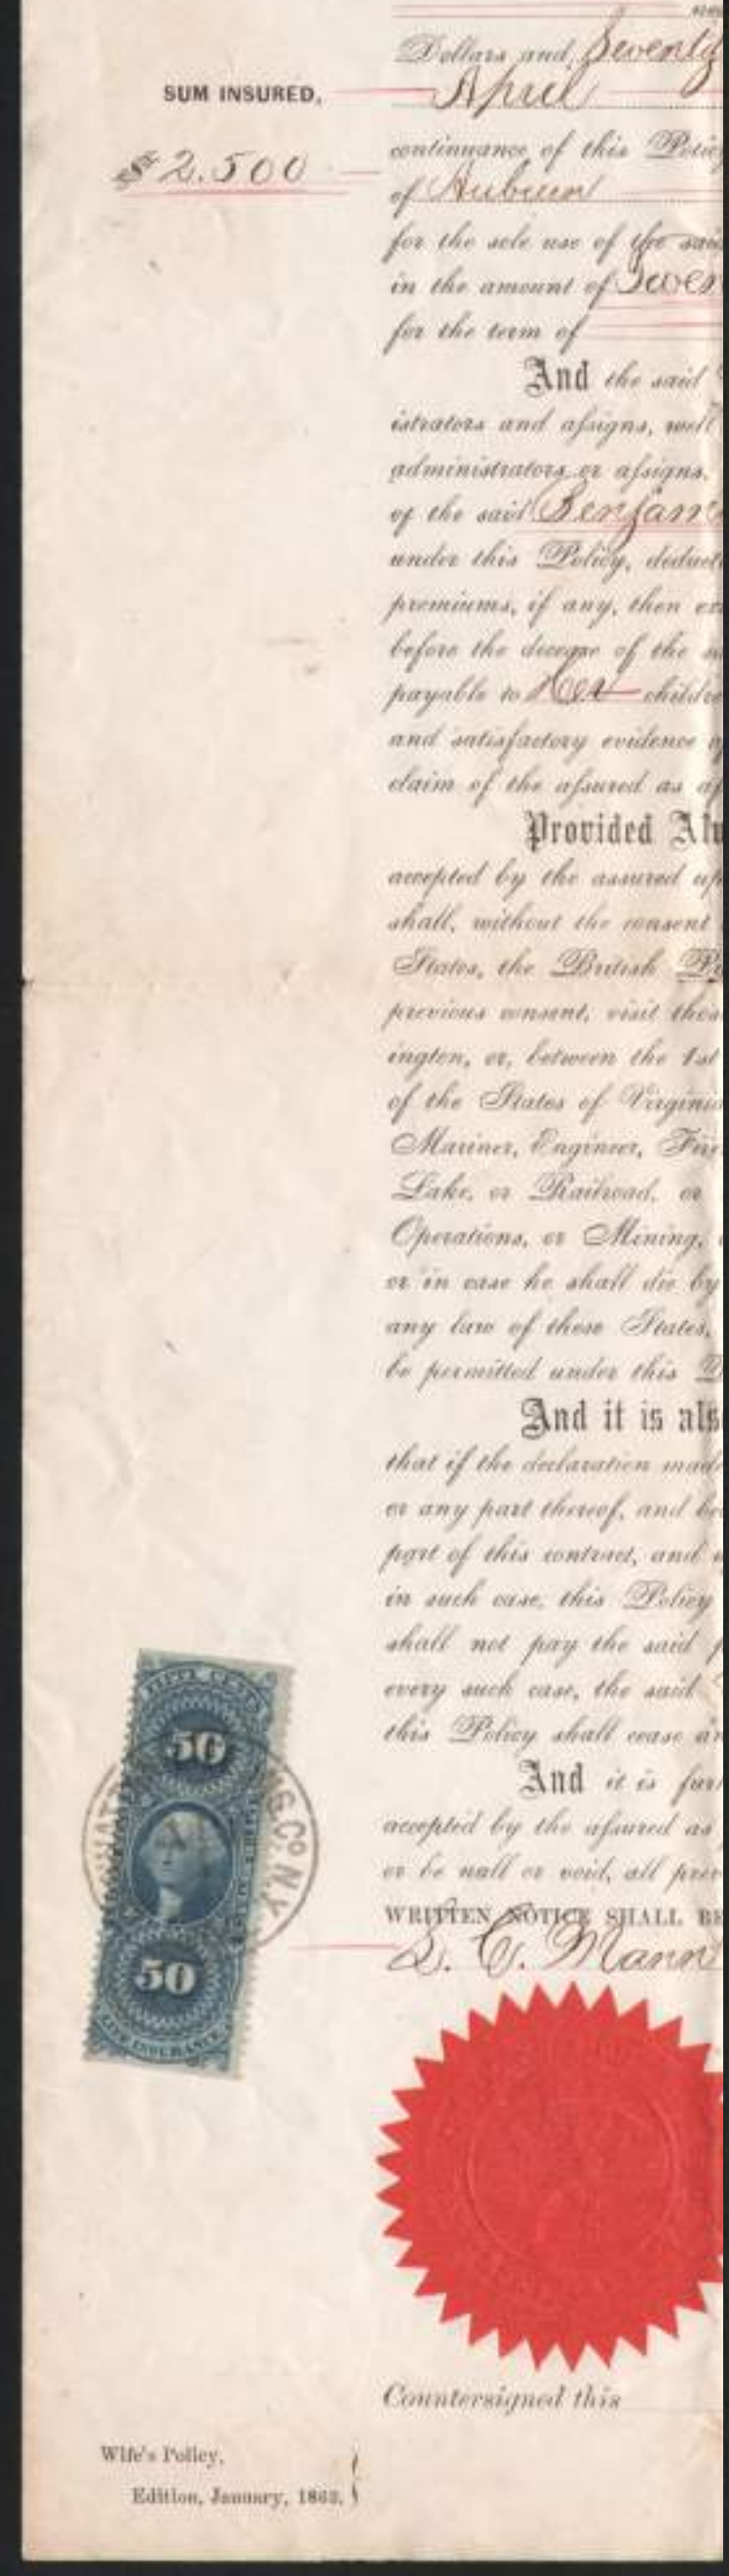 Dollars and Seventy
SUM INSURED,
April
$2.500
continuance of this Policy
of Auburn
for the sole use of the said
in the amount of Twen
for the term of
And the said
istrators and aſsigns, well
administrators or aſsigns.
of the said Benjam
under this Policy, deduct
premiums, if any, then
before the decease of the
payable to Her childre
and satisfactory evidence
claim of the aſsured as
Provided Alw
accepted by the assured
shall, without the consent
States, the British
previous consent, visit those
ington, or, between the 1st
of the States of Virginia
Mariner, Engineer, Fire
Lake, or Railroad, or
Operations, or Mining,
or in case he shall die by
any law of these States,
be permitted under this
And it is als
that if the declaration made
or any part thereof, and
part of this contract, and
in such case, this Policy
shall not pay the said
every such case, the said
this Policy shall cease
And it is fur
accepted by the aſsured as
or be null or void, all
WRITTEN NOTICE SHALL BE
FIFTY CENTS
50
CO N.Y.
50
INSURANCE
Mann
Countersigned this
Wife's Policy,
Edition, January,